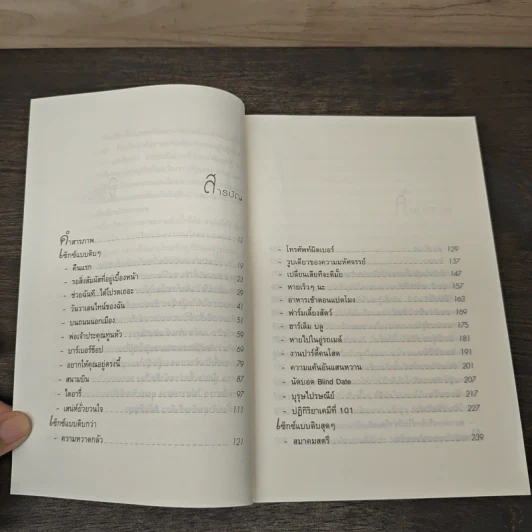 สารบัญ
คำสารภาพ 12
เซ็กซ์แบบดิบๆ
- คืนแรก 19
- รอสิ่งสัมผัสที่อยู่เบื้องหน้า 23
- ช่วยฉันที...ได้โปรดเถอะ 31
- วันวาเลนไทน์ของฉัน 41
- บนถนนนอกเมือง 51
- พ่อเจ้าประคุณทูนหัว 59
- บาร์เบอร์ช็อป 69
- อยากให้คุณอยู่ตรงนี้ 79
- สนามบิน 87
- ไดอารี่ 97
- เสน่ห์ยั่วยวนใจ 111
เซ็กซ์แบบดิบกว่า
- ความหวาดกลัว 121
- โทรศัพท์ผิดเบอร์ 129
- รูปเดียวของความมหัศจรรย์ 137
- เปลี่ยนเตียงดีมั้ย 147
- หายเร็วๆ นะ 157
- อาหารเช้าตอนแปดโมง 163
- ฟาร์มเลี้ยงสัตว์ 169
- ฮาร์เล็ม บลู 175
- หายไปในอู่รถเมล์ 181
- งานปาร์ตี้คนโสด 191
- ความแค้นอันแสนหวาน 201
- นัดบอด Blind Date 207
- บุรุษไปรษณีย์ 217
- ปฏิกิริยาเคมีที่ 101 227
เซ็กซ์แบบดิบสุดๆ
- สมาคมสตรี 239